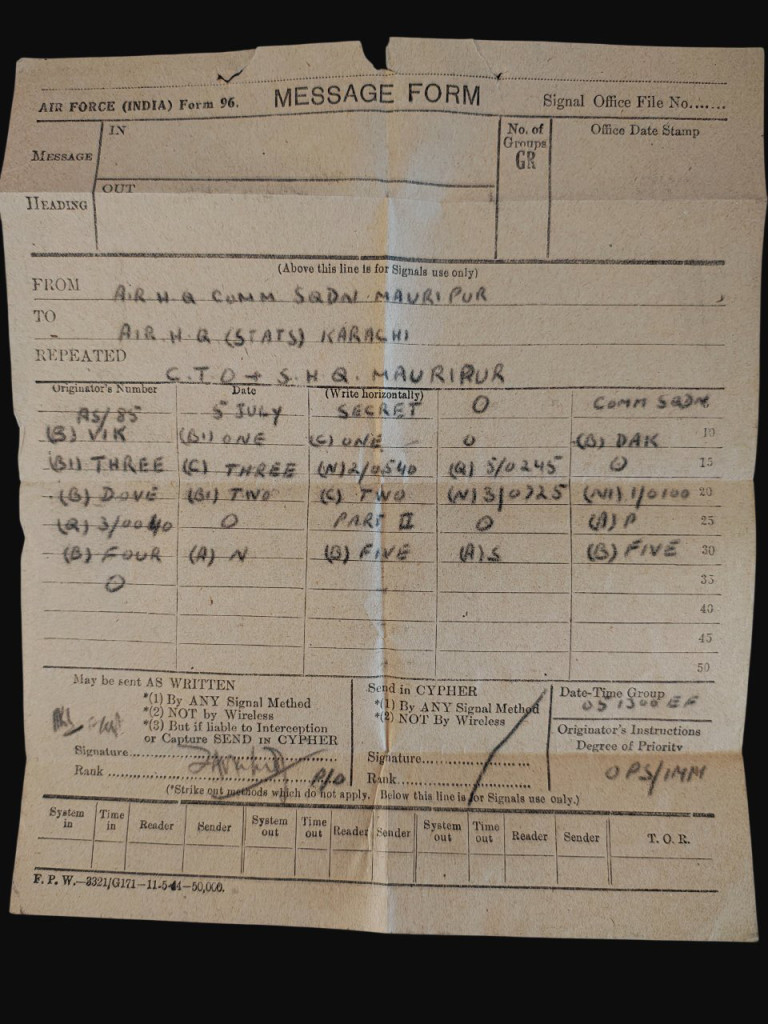 AIR FORCE (INDIA) Form 96. MESSAGE FORM Signal Office File No.......
MESSAGE IN No. of Groups GR Office Date Stamp
HEADING OUT
(Above this line is for Signals use only)
FROM AIR H Q COMM SQDN. MAURIPUR
TO AIR H.Q (STATS) KARACHI
REPEATED C.T.O + S.H.Q. MAURIPUR
Originator's Number Date (Write horizontally)
AS/85 5 JULY SECRET O COMM SQDN
(B) VIK (B1) ONE (C) ONE O (B) DAK 10
(B1) THREE (C) THREE (N) 2/0540 (Q) 5/0245 O 15
(B) DOVE (B1) TWO (C) TWO (N) 3/0725 (N1) 1/0100 20
(Q) 3/0040 O PART II O (A) P 25
(B) FOUR (A) N (B) FIVE (A) S (B) FIVE 30
O 35
40
45
50
May be sent AS WRITTEN
*(1) By ANY Signal Method
*(2) NOT by Wireless
*(3) But if liable to Interception
or Capture SEND IN CYPHER
Signature
Rank P/O
Send in CYPHER
*(1) By ANY Signal Method
*(2) NOT By Wireless
Signature
Rank
Date-Time Group
051300 EF
Originator's Instructions
Degree of Priority
OPS/IMM
(*Strike out methods which do not apply. Below this line is for Signals use only.)
System in Time in Reader Sender System out Time out Reader Sender System out Time out Reader Sender T. O. R.
F. P. W.—3321/G171—11-5-44—50,000.